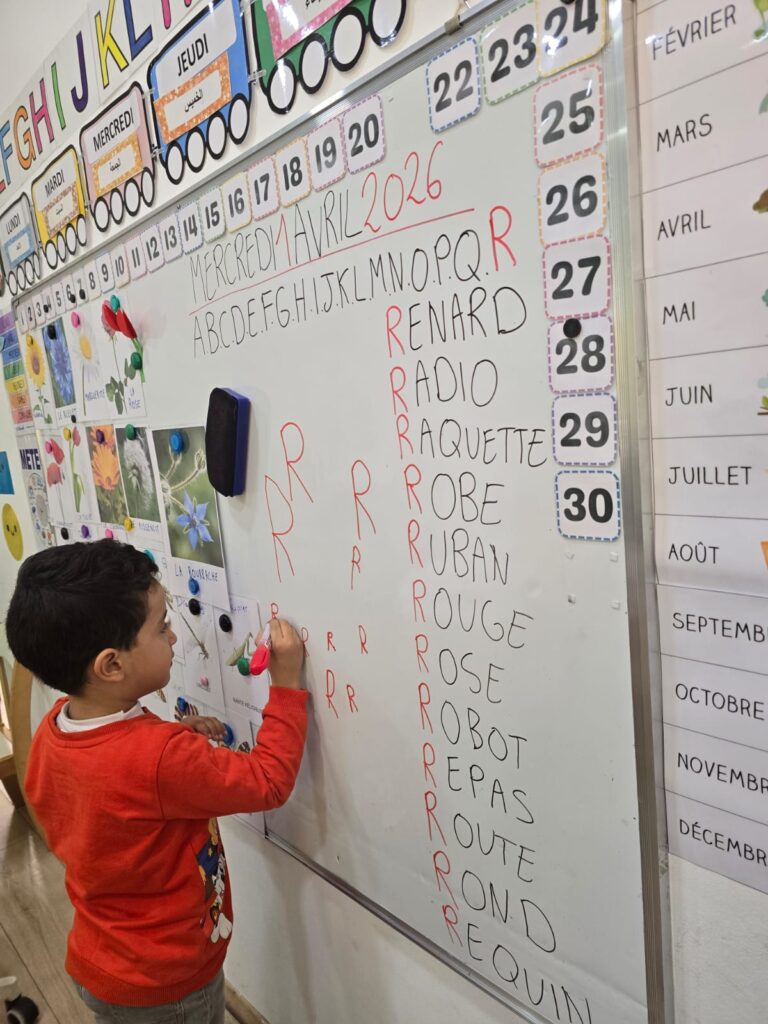 E F G H I J K L
LUNDI
MARDI
MERCREDI
JEUDI
الخميس
1 2 3 4 5 6 7 8 9 10 11 12 13 14 15 16 17 18 19 20
22 23 24
25
26
27
28
29
30
MERCREDI 1 AVRIL 2026
ABCDE.F.G.H.I.J.K.L.M.N.O.P.Q.R
RENARD
RADIO
RAQUETTE
ROBE
RUBAN
ROUGE
ROSE
ROBOT
REPAS
ROUTE
ROND
REQUIN
R
R R
R
R R R
R R
MARGUERITE
LA ROSE
METE
LA BOURRACHE
FÉVRIER
MARS
AVRIL
MAI
JUIN
JUILLET
AOÛT
SEPTEMB
OCTOBRE
NOVEMBR
DÉCEMBR